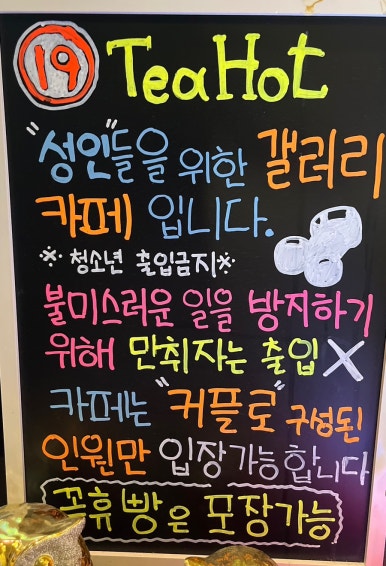 19 TeaHot
"성인"들을 위한 갤러리
카페 입니다.
※ 청소년 출입금지※
불미스러운 일을 방지하기
위해 만취자는 출입 X
카페는 "커플로" 구성된
인원만 입장가능합니다
꼭휴빵은 포장가능